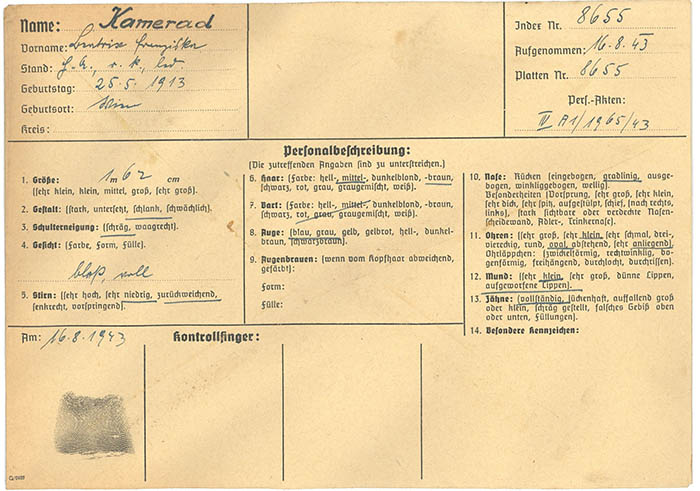 Name: Kamerad
Vorname: Beatrix Franziska
Stand: r. k., led
Geburtstag: 25. 5. 1913
Geburtsort: Wien
Kreis:
Index Nr. 8655
Aufgenommen: 16. 8. 43
Platten Nr. 8655
Pers.-Akten:
IV A1/1965/43
Personalbeschreibung:
(Die zutreffenden Angaben sind zu unterstreichen.)
1. Größe: 1 m 62 cm
(sehr klein, klein, mittel, groß, sehr groß).
2. Gestalt: (stark, untersetzt, schlank, schwächlich).
3. Schulterneigung: (schräg, waagrecht).
4. Gesicht: (Farbe, Form, Fülle).
blaß, voll
5. Stirn: (sehr hoch, sehr niedrig, zurückweichend,
senkrecht, vorspringend).
6. Haar: (Farbe: hell-, mittel-, dunkelblond, -braun,
schwarz, rot, grau, graugemischt, weiß).
7. Bart: (Farbe: hell-, mittel-, dunkelblond, -braun,
schwarz, rot, grau, graugemischt, weiß).
8. Auge: (blau, grau, gelb, gelbrot, hell-, dunkel-
braun, schwarzbraun).
9. Augenbrauen: (wenn vom Kopfhaar abweichend,
gefärbt):
Form:
Fülle:
10. Nase: Rücken (eingebogen, gradlinig, ausge-
bogen, winkliggebogen, wellig).
Besonderheiten (Vorsprung, sehr groß, sehr klein,
sehr dick, sehr spitz, aufgestülpt, schief, (nach rechts,
links), stark sichtbare oder verdeckte Nasen-
scheidewand, Adler-, Trinkernase).
11. Ohren: (sehr groß, sehr klein, sehr schmal, drei-,
viereckig, rund, oval, abstehend, sehr anliegend).
Ohrläppchen: (zwickelförmig, rechtwinklig, bo-
genförmig, freihängend, durchlocht, durchrissen).
12. Mund: (sehr klein, sehr groß, dünne Lippen,
aufgeworfene Lippen).
13. Zähne: (vollständig, lückenhaft, auffallend groß
oder klein, schräg gestellt, falsches Gebiß oben
oder unten, Füllungen).
14. Besondere Kennzeichen:
Am: 16. 8. 1943
Kontrollfinger: